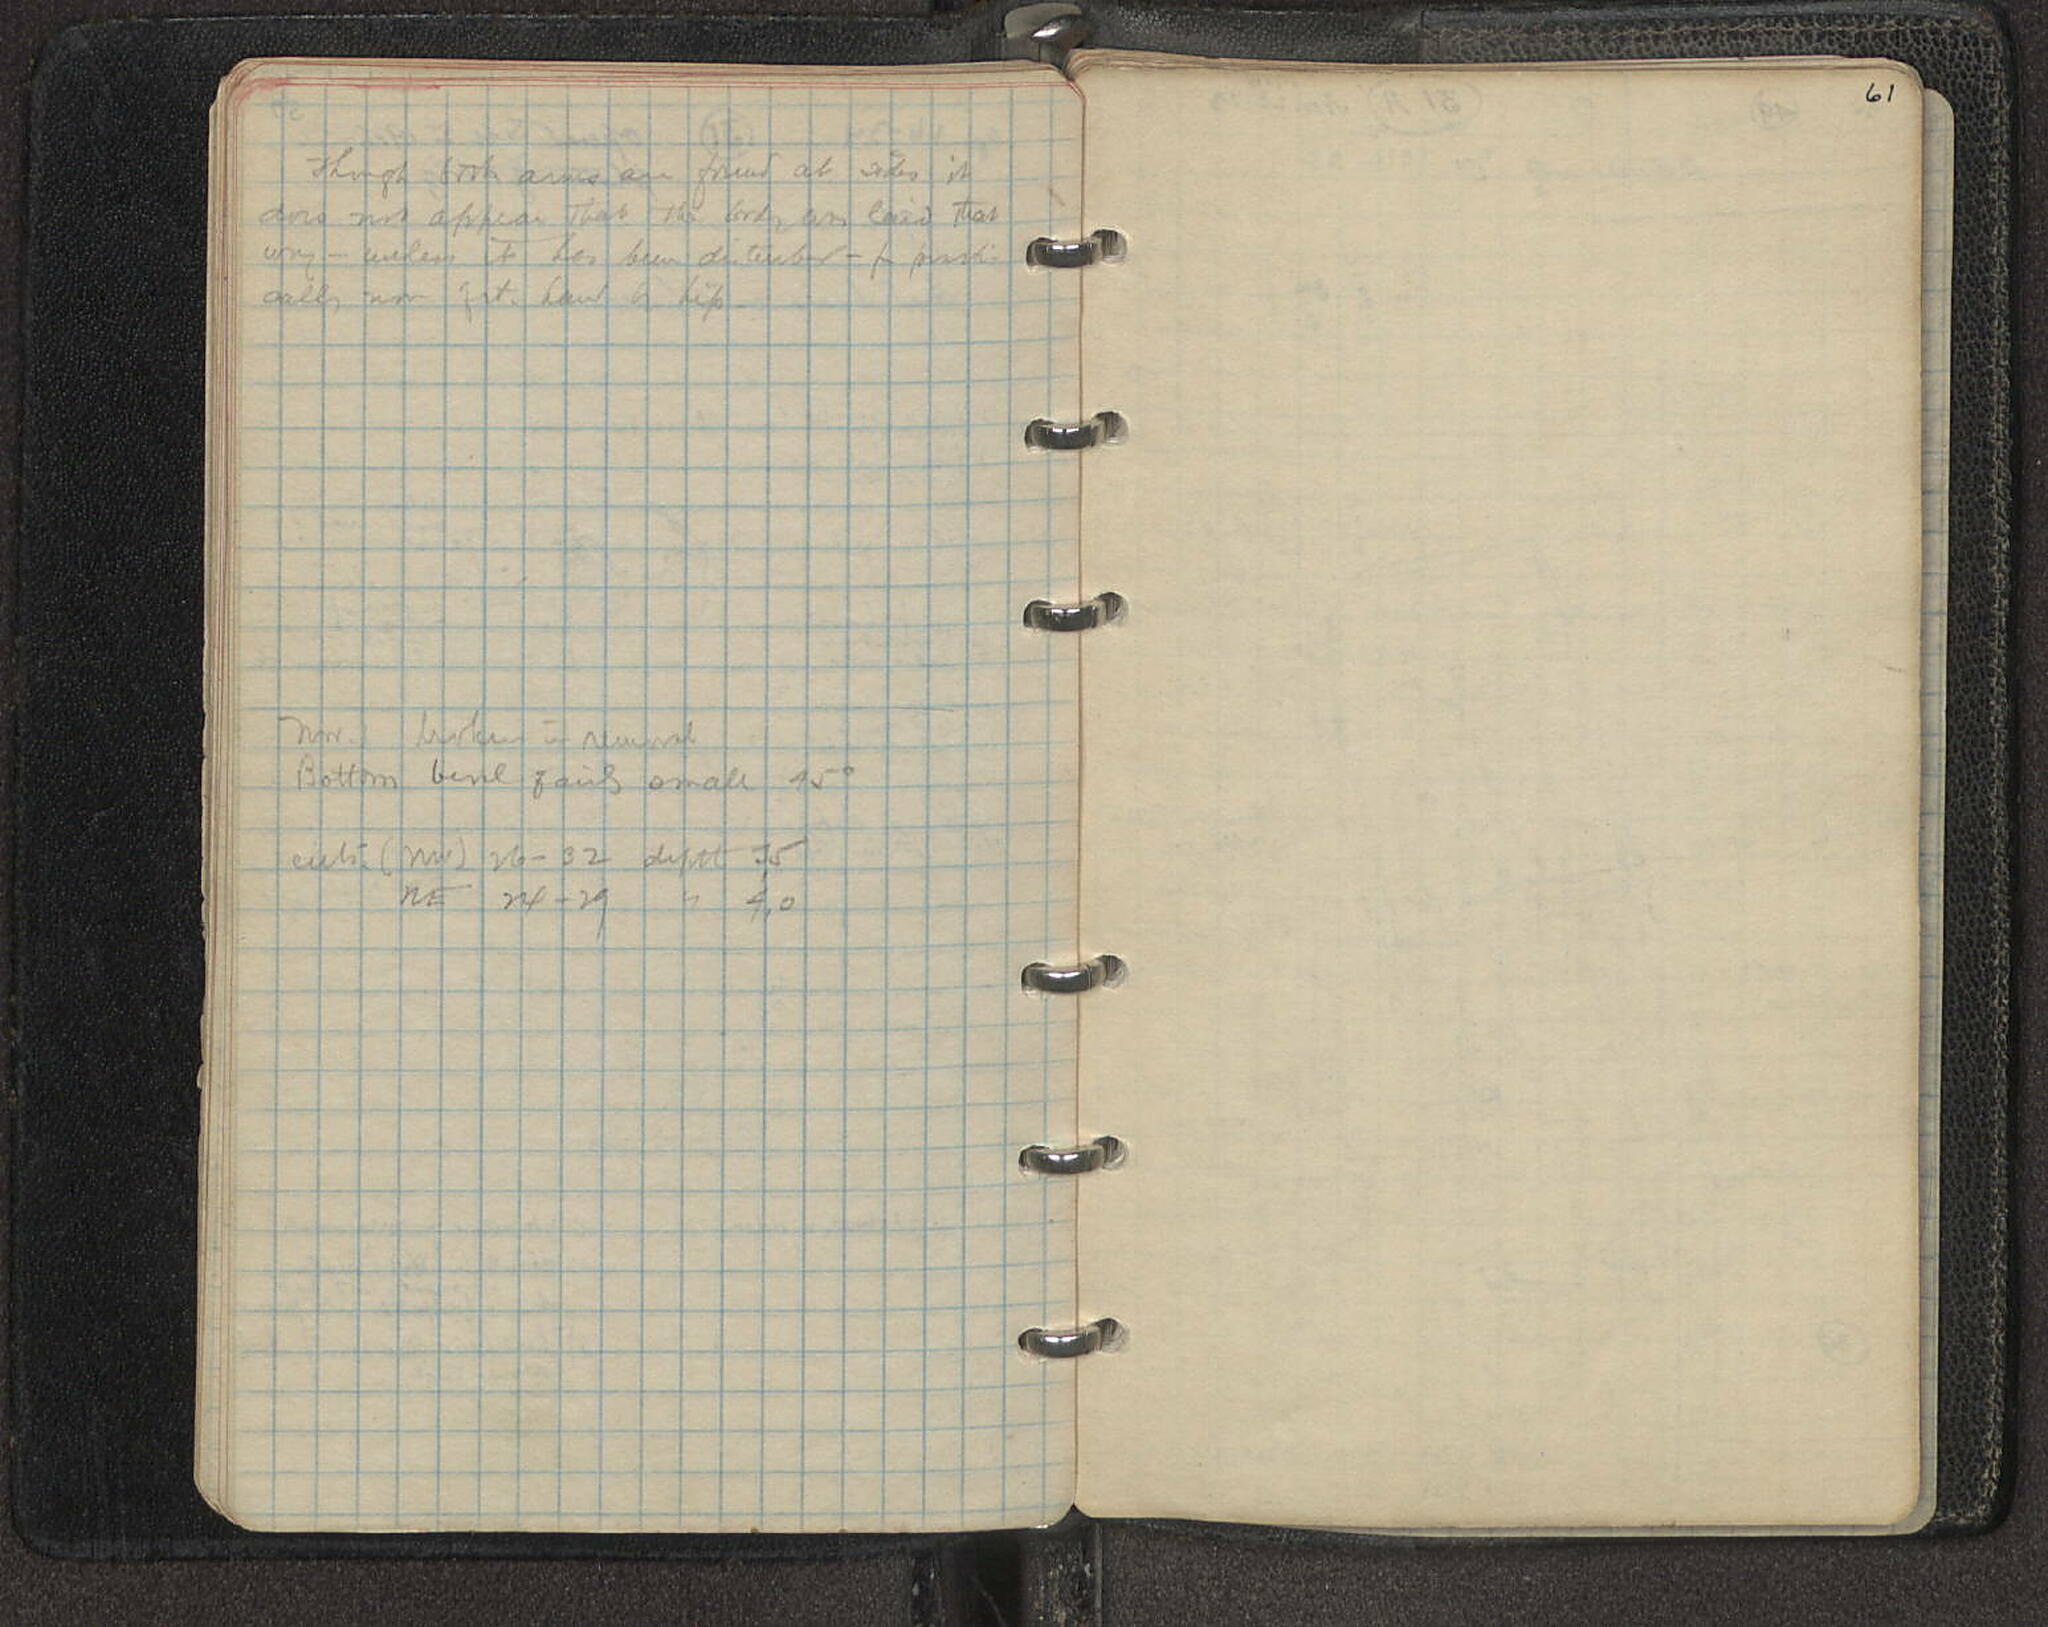 Though both arms are found at sides it
does not appear that the body was laid that
way – unless it has been disturbed – for practi-
cally now rt. hand by hip.
broken in removal
Bottom bevel fairly small 45°
cuts (NW) 26–32 depth 3,5
NE 24–29 " 4,0
61